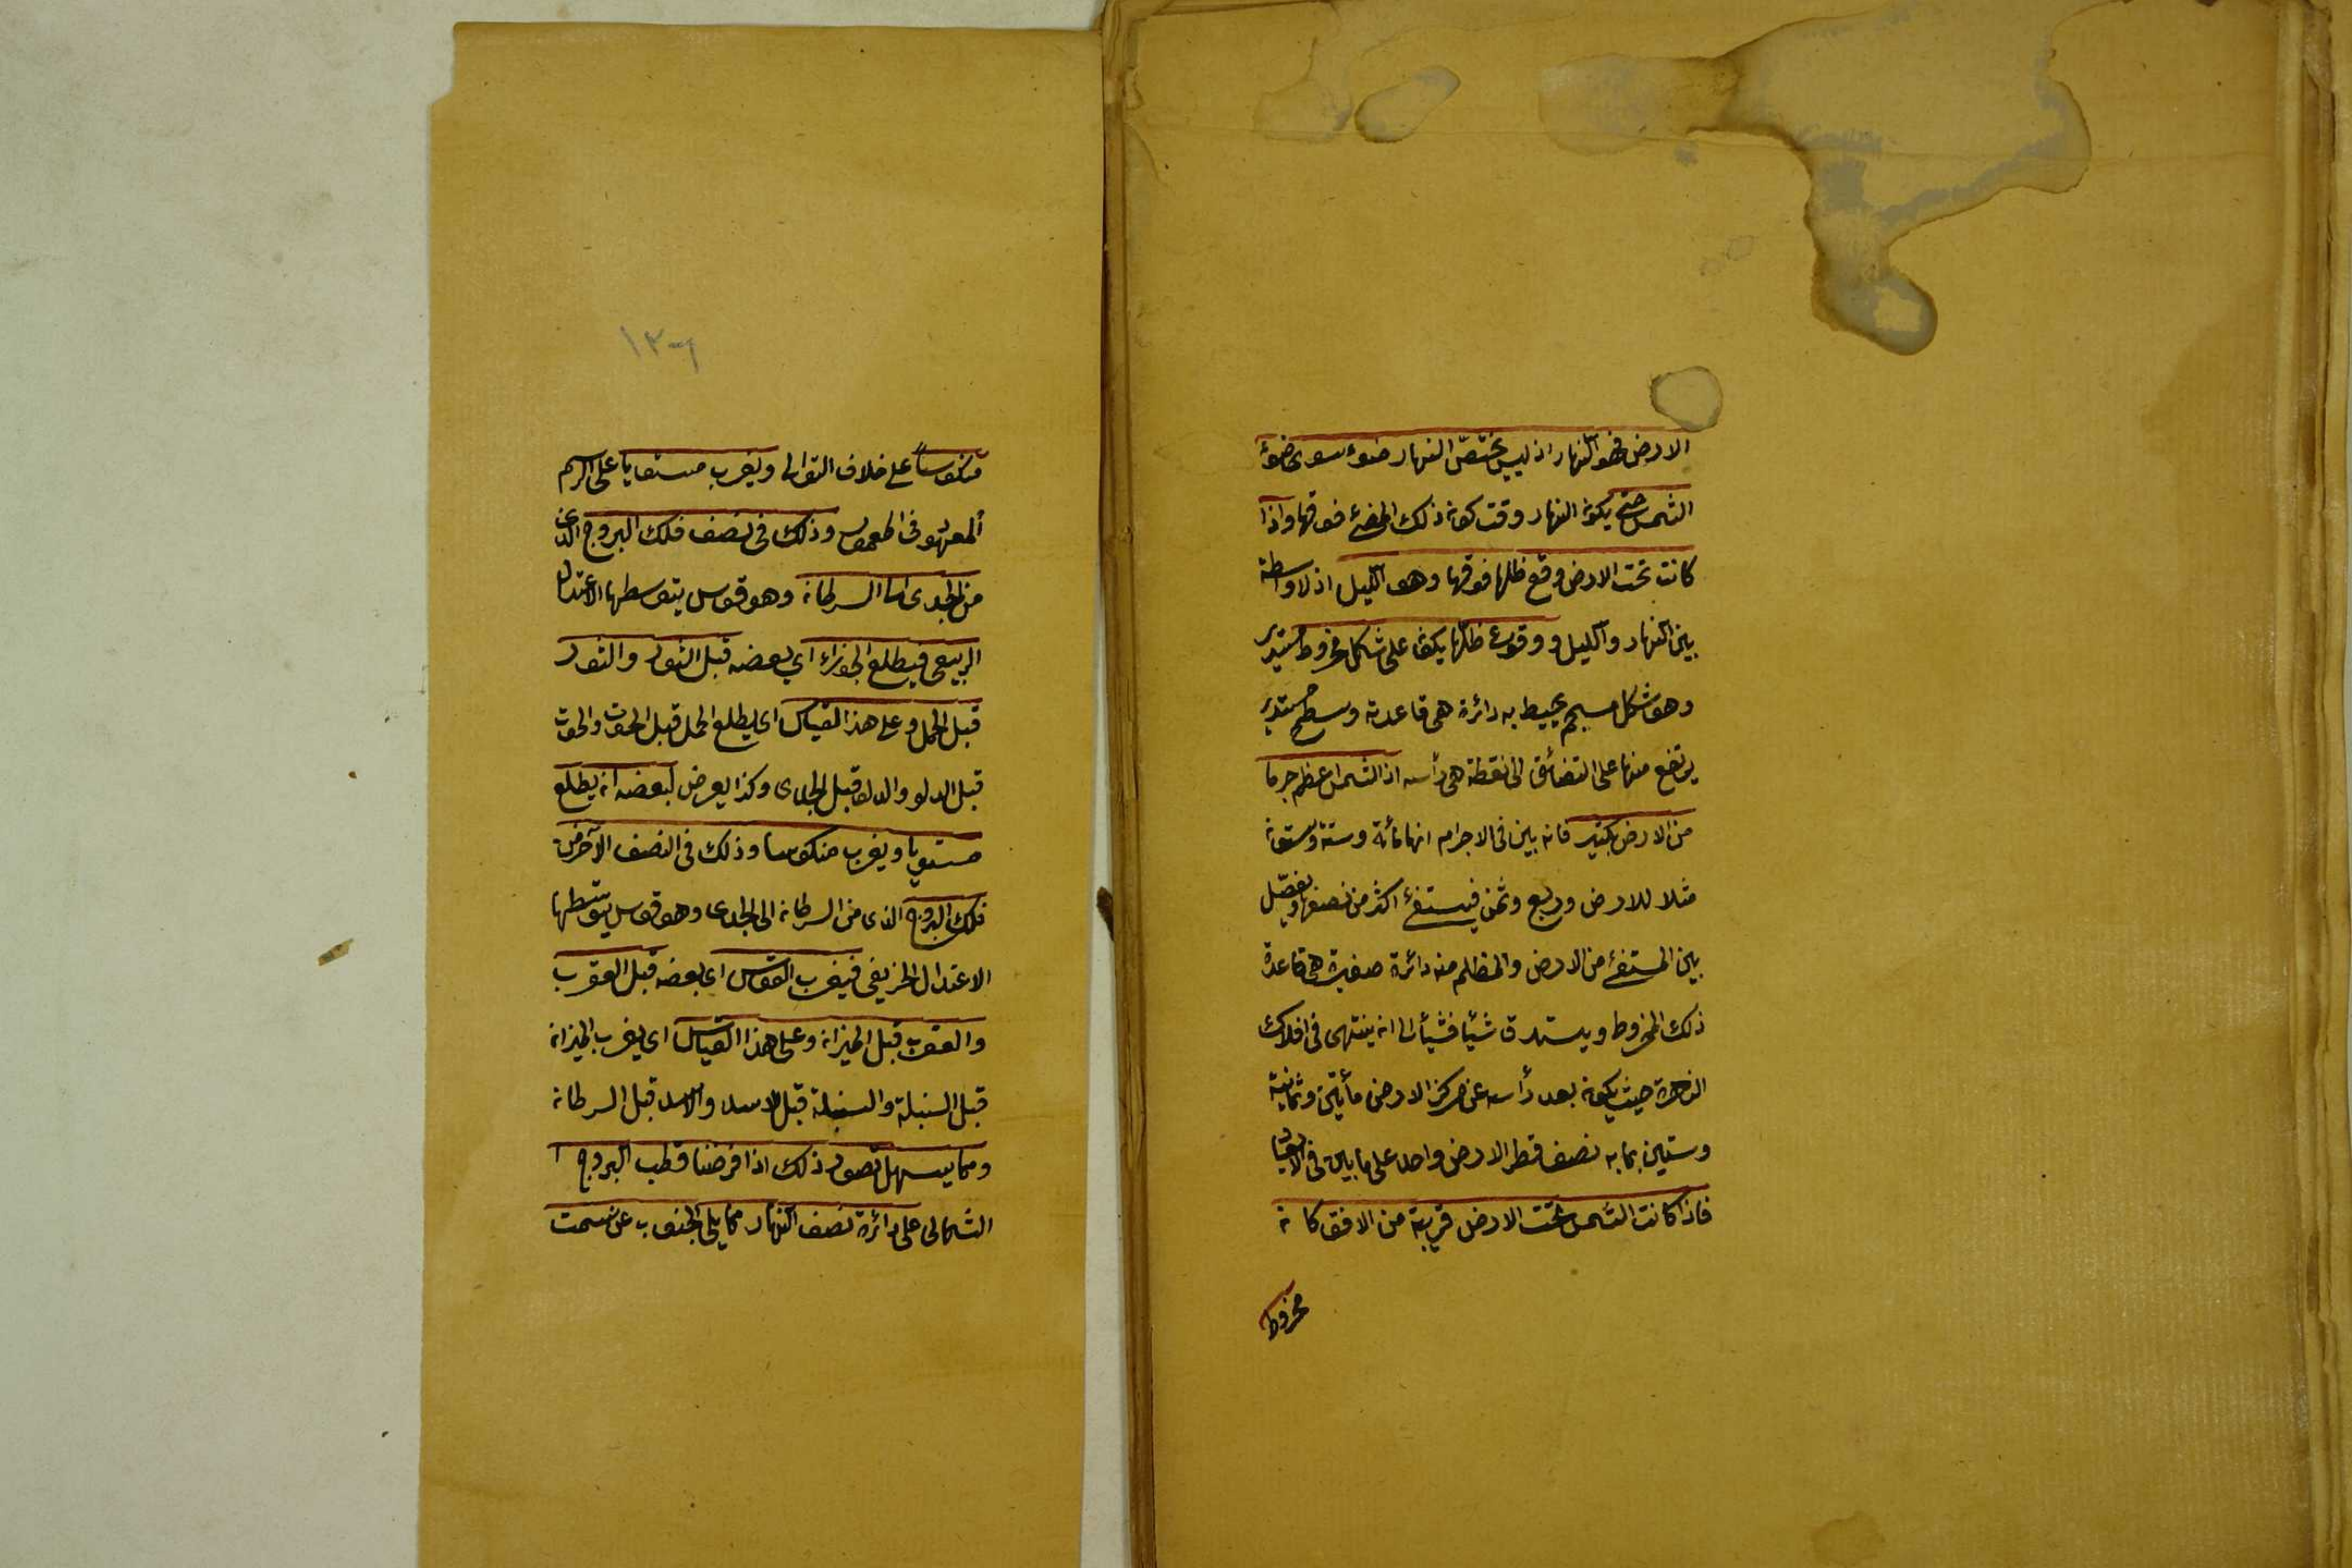 الارض فهو النهار اذ ليس يختص النهار ضوء سوى ضوء
الشمس حتى يكون النهار وقت كون ذلك المضئ فوقها واذا
كانت تحت الارض وقع ظلها فوقها وهو الليل اذ لا واسطة
بين النهار والليل و وقوع ظلها يكون على شكل مخروط مستدير
وهو شكل مسجم يحيط به دائرة هى قاعدته وسطح مستدير
يرتفع منها على التضائق الى نقطة هى رأسه اذ الشمس اعظم جرما
من الارض بكثير فانه بين فى الاجرام انها مائة وستة وستون
مثلا للارض وربع وثمن فيستضئ اكثر من نصفها ويفصل
بين المستضئ من الارض والمظلم منه دائرة صغيرة هى قاعدة
ذلك المخروط ويستدق شيأ فشيأ الى ان ينتهى فى افلاك
الزهرة حيث يكون بعد رأسه عن مركز الارض مأتين وثمانية
وستين بما به نصف قطر الارض واحد على ما بين فى الابعاد
فاذا كانت الشمس تحت الارض قريبة من الافق كان
مخروط
١٢٦
منكوساً على خلاف التوالى ويغرب مستويا على الرسم
المعهود فى المعمور وذلك فى نصف فلك البروج الذى
من الجدى الى السرطان وهو قوس يتوسطها الاعتدال
الربيعى فيطلع الجوزاء اى بعضه قبل الثور والثور
قبل الحمل وعلى هذا القياس اى يطلع الحمل قبل الحوت والحوت
قبل الدلو والدلو قبل الجدى وكذا يعرض لبعضه ان يطلع
مستويا ويغرب منكوسا وذلك فى النصف الآخر من
فلك البروج الذى من السرطان الى الجدى وهو قوس يتوسطها
الاعتدال الخريفى فيغرب القوس اى بعضه قبل العقرب
والعقرب قبل الميزان وعلى هذا القياس اى يغرب الميزان
قبل السنبلة والسنبلة قبل الاسد والاسد قبل السرطان
ومما يسهل تصور ذلك اذا فرضنا قطب البروج
الشمالى على دائرة نصف النهار مما يلى الجنوب عن سمت